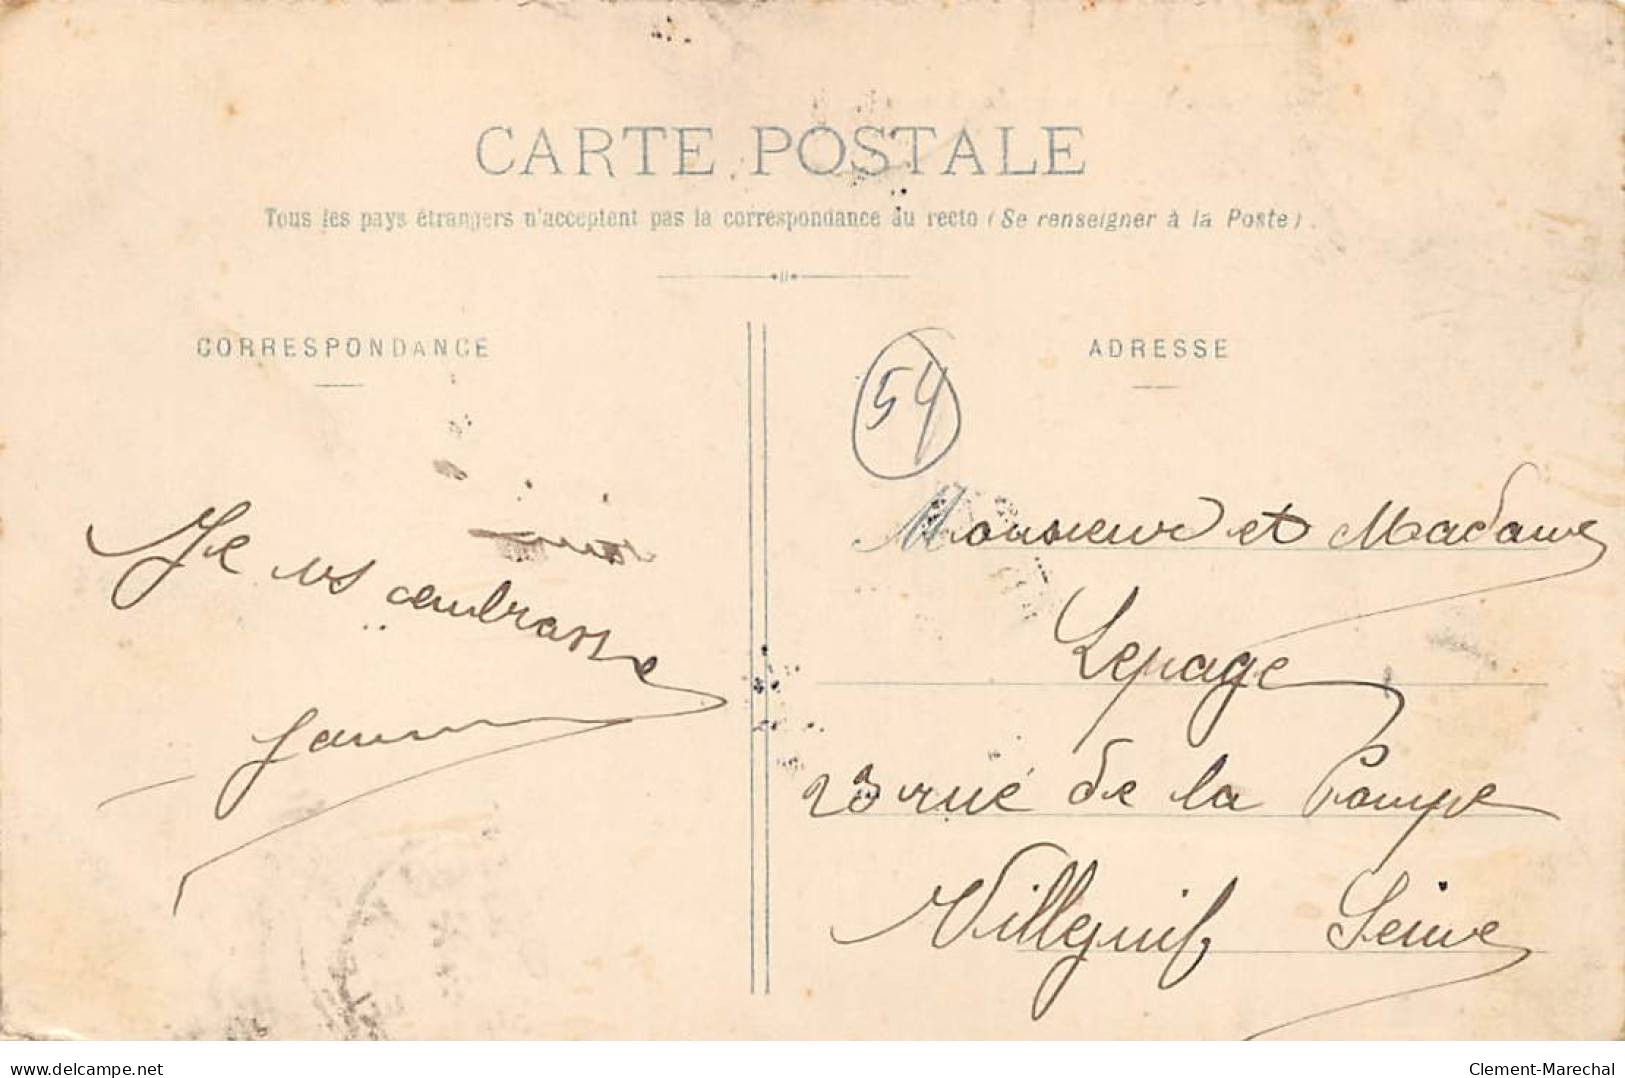 CARTE POSTALE
Tous les pays étrangers n'acceptent pas la correspondance au recto (Se renseigner à la Poste).
CORRESPONDANCE
ADRESSE
54
Je vs embrasse
Monsieur et Madame
Lepage
23 rue de la Pompe
Villejuif Seine
www.delcampe.net
Clement-Marechal